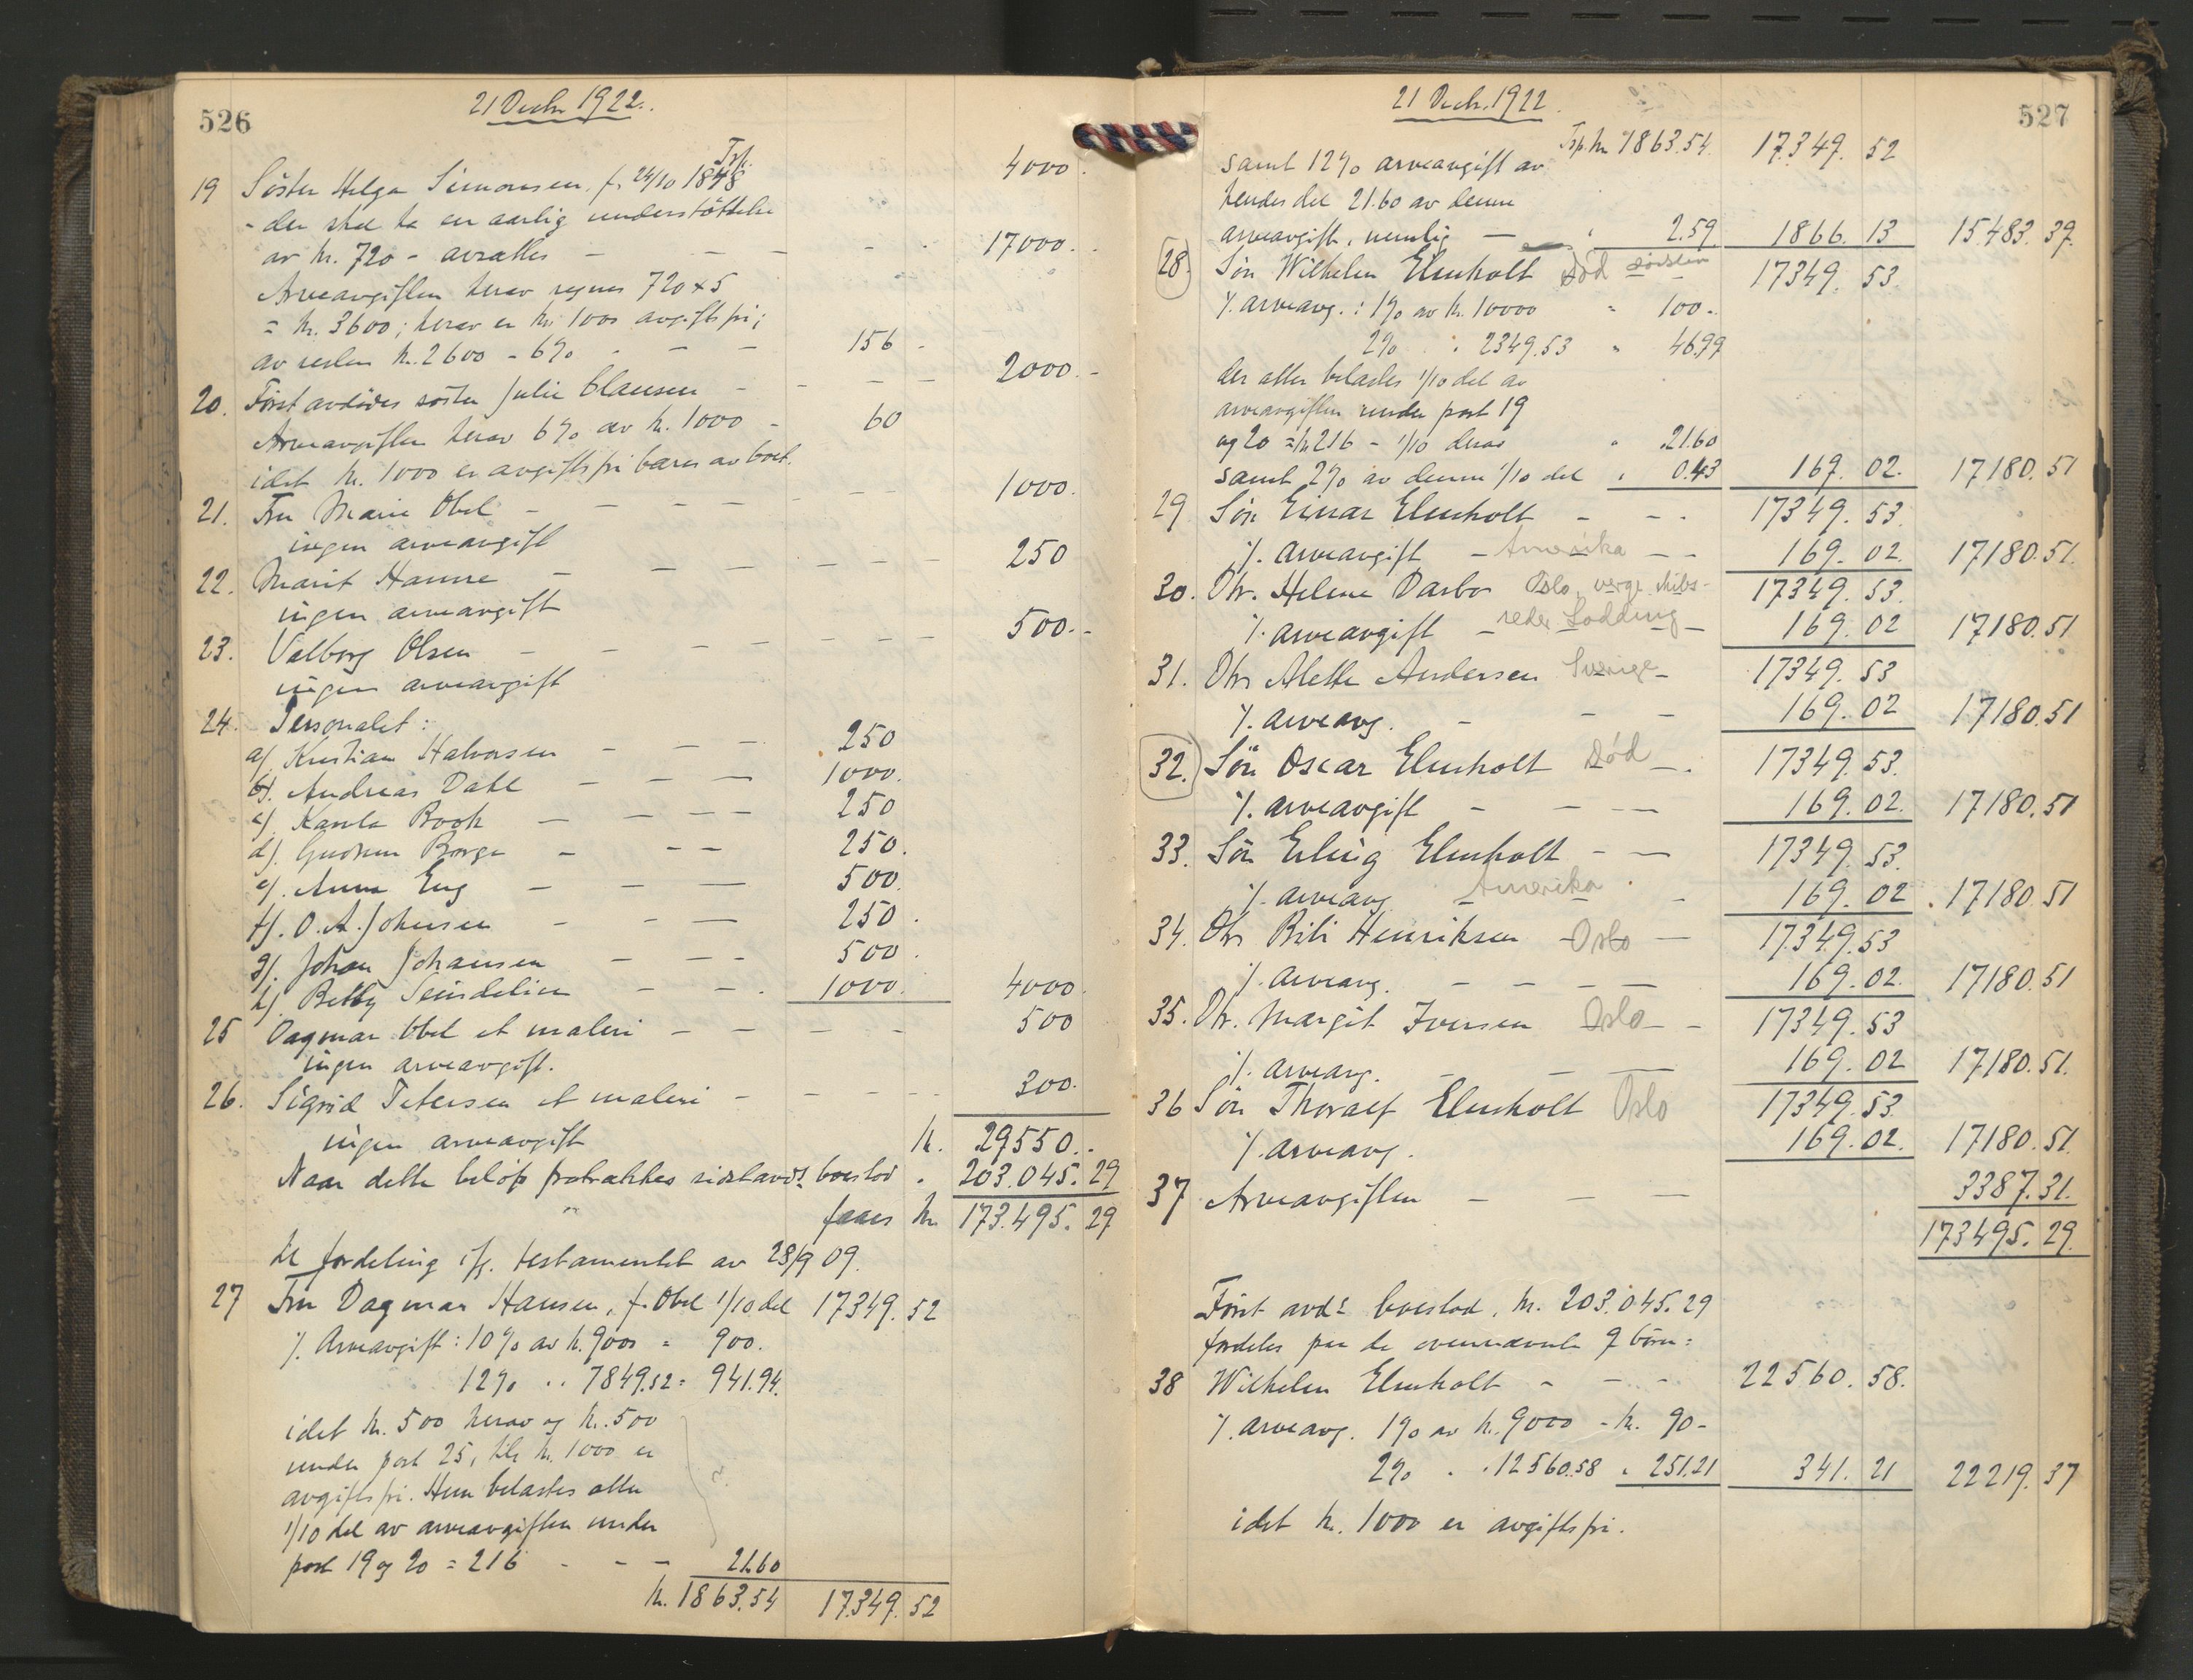 526
21 Decbr 1922.
Trsp. 4000.
19 Söster Helga Simonsen, f. 24/10 1848
- der skal ha en aarlig understöttelse
av kr. 720 - avsattes - - - 17000.-
Arveavgiften herav regnes 720 x 5
= kr. 3600; herav er kr. 1000 avgiftsfri;
av resten kr. 2600 - 6% - - 156 -
20. Först avdödes söster Julie Clausen - - - 2000.-
Arveavgiften herav 6% av kr. 1000 - 60
idet kr. 1000 er avgiftsfri bæres av boet.
21. Fru Marie Obel - - - - 1000.
ingen arveavgift
22. Marit Hamre - - - - 250
ingen arveavgift
23. Valborg Olsen - - - - 500.-
ingen arveavgift
24. Personalet:
a/. Kristian Halvorsen - - - 250
b/. Andreas Dahl - - - 1000.
c/. Karola Rook - - - 250
d/. Gudrun Borge - - - 250.
e/. Anna Eng - - - 500.
f/. O. A. Johnsen - - - 250.
g/. Johan Johansen - - - 500.
h/. Betty Seindelin - - - 1000. 4000.
25 Dagmar Obel et maleri - - - - 500
ingen arveavgift.
26. Sigrid Petersen et maleri - - - - 300.
ingen arveavgift kr. 29550.-
Naar dette belöp fratrækkes sidstavds boeslod . 203.045.29
faaes kr. 173.495.29
til fordeling ifg. testamentet av 28/9 09.
27 Fru Dagmar Hansen, f. Obel 1/10 del 17349.52
%. Arveavgift: 10% av kr. 9000 = 900.
12% .. 7849.52 = 941.94.
idet kr. 500 herav og kr. 500
under post 25, tils kr. 1000 er
avgiftsfri. Hun belastes atter
1/10 del av arveavgiften under
post 19 og 20 = 216 - - - 21.60
kr. 1863.54 17.349.52
527
21 Decbr. 1922.
Trsp. kr. 1863.54 17.349.52
samt 12% arveavgift av
hendes del 21.60 av denne
arveavgift, nemlig - " 2.59 1866.13 15.483.39.
28. Sön Wilhelm Elmholt Död 17349.53.
%. arveavg.: 1% av kr. 10000 " 100.-
2% . 2349.53 " 46.99
der atter belastes 1/10 del av
arveavgiften under post 19
og 20 = kr. 216 - 1/10 derav " 21.60
samt 2% av denne 1/10 del " 0.43 169.02. 17180.51
29 Sön Einar Elmholt - - - 17349.53.
%. arveavgift - Amerika - - 169.02 17180.51.
30. Dtr. Helene Darbo Oslo, verge skibs- 17349.53.
reder Lodding
%. arveavgift - 169.02 17180.51
31. Dtr Alette Andersen Sverige - 17349.53
%. arveavg. - - - 169.02 17180.51
32. Sön Oscar Elmholt Död - 17349.53.
%. arveavgift - - - 169.02. 17180.51
33. Sön Erling Elmholt - - 17349.53.
%. arveavg Amerika - 169.02 17180.51
34. Dtr Bibi Henriksen Oslo - 17349.53
%. arveavg. - - - 169.02. 17180.51
35. Dtr. Margit Iversen Oslo - - 17349.53
%. arveavg. - - - 169.02 17180.51.
36 Sön Thoralf Elmholt Oslo 17349.53.
%. arveavg. 169.02. 17180.51.
37 Arveavgiften - - - 3387.31.
173495.29.
Först avds boeslod, kr. 203.045.29
fordeles paa de ovennævnte 9 börn:
38 Wilhelm Elmholt - - - 22560.58.
%. arveavg. 1% av kr. 9000 - kr. 90 -
2% . . 12560.58 " 251.21 341.21 22219.37
idet kr. 1000 er avgiftsfri.